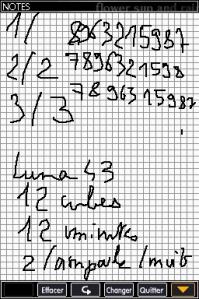 NOTES
flower sun and rai
1/ 8963215987
2/2 78963215987
3/3 78963215987
Luna 43
12 cubes
12 minutes
2/ampoule/nuit
Effacer Changer Quitter